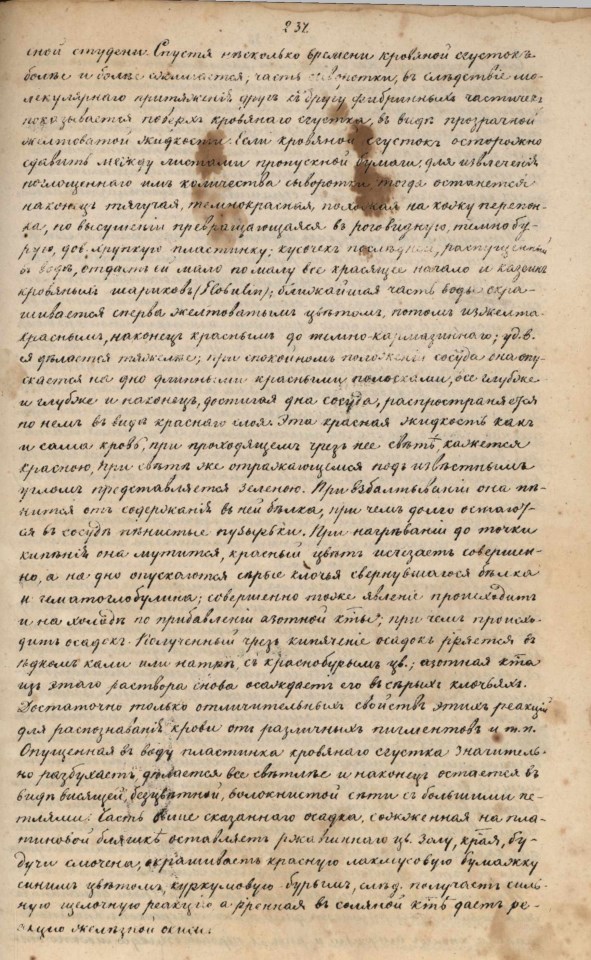 237
сной студени. Спустя нѣсколько времени кровяной сгустокъ
болѣе и болѣе сжимается; часть сыворотки, въ слѣдствіе мо-
лекулярнаго притяженія другъ къ другу фибринныхъ частичекъ
показывается поверхъ кровянаго сгустка, въ видѣ прозрачной
желтоватой жидкости. Если кровяной сгустокъ осторожно
сдавить между листами пропускной бумаги, для извлеченія
поглощеннаго имъ количества сыворотки, тогда останется
наконецъ тягучая, темнокрасная, похожая на кожу перепон-
ка, по высушеніи превращающаяся въ роговидную, темнобу-
рую, дов. хрупкую пластинку; кусочекъ послѣдней, распущенный
въ водѣ, отдастъ ей мало по малу все красящее начало и казеинъ
кровяныхъ шариковъ (Globulin); ближайшая часть воды окра-
шивается сперва желтоватымъ цвѣтомъ, потомъ изжелта-
краснымъ, наконецъ краснымъ до темно-кармазиннаго; уд. в.
ея дѣлается тяжелѣе; при спокойномъ положеніи сосуда она опу-
скается на дно длинными красными полосками, все глубже
и глубже и наконецъ, достигая дна сосуда, распространяется
по немъ въ видѣ краснаго слоя. Эта красная жидкость какъ
и сама кровь, при проходящемъ чрезъ нее свѣтѣ, кажется
красною, при свѣтѣ же отражающемся подъ извѣстнымъ
угломъ представляется зеленою. При взбалтываніи она пѣ-
нится отъ содержанія въ ней бѣлка, при чемъ долго остают-
ся въ сосудѣ пѣнистые пузырьки. При нагрѣваніи до точки
кипѣнія она мутится, красный цвѣтъ исчезаетъ совершен-
но, а на дно опускаются сѣрые клочья свернувшагося бѣлка
и гематоглобулина; совершенно тоже явленіе происходитъ
и на холодѣ по прибавленіи азотной кты; при чемъ происхо-
дитъ осадокъ. Полученный чрезъ кипяченіе осадокъ рряется въ
ѣдкомъ кали или натрѣ, съ краснобурымъ цв.; азотная кта
изъ этаго раствора снова осаждаетъ его въ сѣрыхъ клочьяхъ.
Достаточно только отличительныхъ свойствъ этихъ реакцій
для распознаванія крови отъ различныхъ пигментовъ и т.п.
Опущенная въ воду пластинка кровянаго сгустка значитель-
но разбухаетъ, дѣлается все свѣтлѣе и наконецъ остается въ
видѣ висящей, безцвѣтной, волокнистой сѣти съ большими пе-
тлями. Часть выше сказаннаго осадка, сожженная на пла-
тиновой бляшкѣ оставляетъ ржавиннаго цв. золу, края, бу-
дучи смочена, окрашиваетъ красную лакмусовую бумажку
синимъ цвѣтомъ, куркумовую бурымъ, слѣд. получаетъ силь-
ную щелочную реакцію а рренная въ соляной ктѣ даетъ ре-
акцію желѣзной окиси.